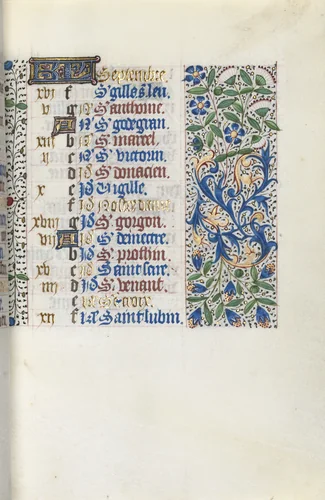 KL Septembre
xvi f S gilles s leu.
g S anthoine.
A S godegran.
xiii b S marcel.
ii c S victorin.
d S donacien.
x e vigille.
f
xviii g S gorgon.
vii A S demectre.
b S prothin.
xv c Saint
iiii d S venant.
e Ste croix.
xii f Saint lubin.